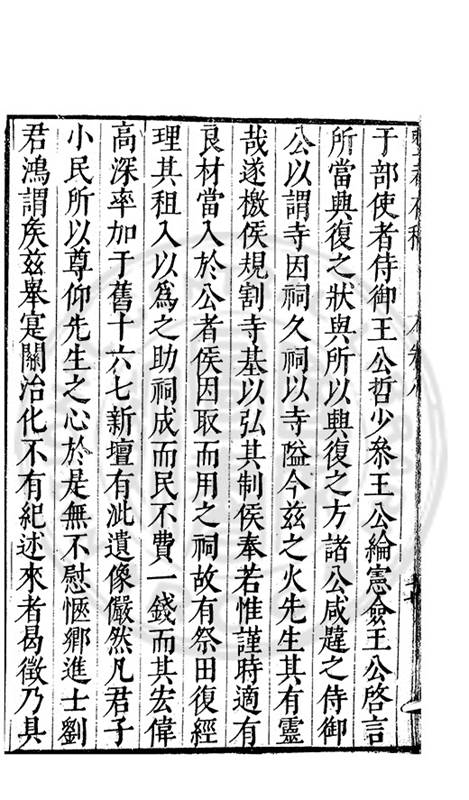 于部使者侍御王公哲少叅王公綸憲僉王公啓言
所當興復之狀與所以興復之方諸公咸韙之侍御
公以謂寺因祠久祠以寺隘今茲之火先生其有靈
哉遂檄侯規割寺基以弘其制侯奉若惟謹時適有
良材當入於公者侯因取而用之祠故有祭田復經
理其租入以爲之助祠成而民不費一錢而其宏偉
高深率加于舊十六七新壇有泚遺像儼然凡君子
小民所以尊仰先生之心於是無不慰愜鄉進士劉
君鴻謂矦茲舉寔關治化不有紀述來者曷徵乃具